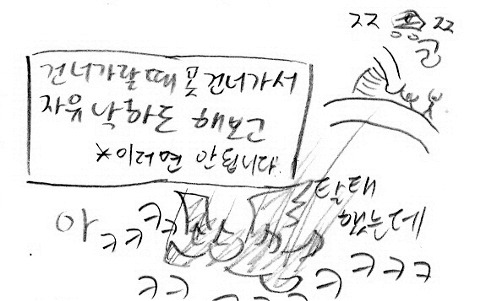 ㅈㅈ ㅉ
건너가랄때 못 건너가서
자유낙하도 해보고
*이러면 안됩니다
탈태
했는데
아 ㅋㅋㅋ
ㅋㅋ ㅋㅋㅋ